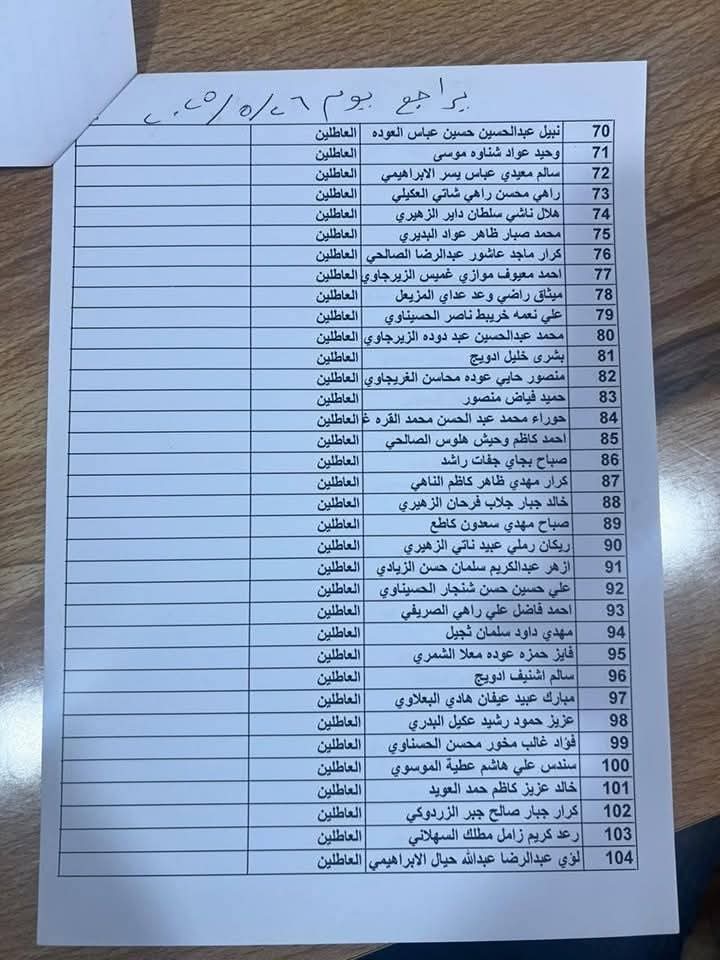 يراجع يوم ٢٠٢٥/٥/٢٦
70 نبيل عبدالحسين حسين عباس العوده العاطلين
71 وحيد عواد شناوه موسى العاطلين
72 سالم معيدي عباس يسر الابراهيمي العاطلين
73 راهي محسن راهي شاتي العكيلي العاطلين
74 هلال ناشي سلطان داير الزهيري العاطلين
75 محمد صبار ظاهر عواد البديري العاطلين
76 كرار ماجد عاشور عبدالرضا الصالحي العاطلين
77 احمد معيوف موازي غميس الزيرجاوي العاطلين
78 ميثاق راضي وعد عداي المزيعل العاطلين
79 علي نعمه خريبط ناصر الحسيناوي العاطلين
80 محمد عبدالحسين عبد دوده الزيرجاوي العاطلين
81 بشرى خليل ادويج العاطلين
82 منصور حايي عوده محاسن الغريجاوي العاطلين
83 حميد فياض منصور العاطلين
84 حوراء محمد عبد الحسن محمد القره غ العاطلين
85 احمد كاظم وحيش هلوس الصالحي العاطلين
86 صباح بجاي جفات راشد العاطلين
87 كرار مهدي ظاهر كاظم الناهي العاطلين
88 خالد جبار جلاب فرحان الزهيري العاطلين
89 صباح مهدي سعدون كاطع العاطلين
90 ريكان رملي عبيد ناتي الزهيري العاطلين
91 ازهر عبدالكريم سلمان حسن الزيادي العاطلين
92 علي حسين حسن شنجار الحسيناوي العاطلين
93 احمد فاضل علي راهي الصريفي العاطلين
94 مهدي داود سلمان ثجيل العاطلين
95 فايز حمزه عوده معلا الشمري العاطلين
96 سالم اشنيف ادويج العاطلين
97 مبارك عبيد عيفان هادي البعلاوي العاطلين
98 عزيز حمود رشيد عكيل البدري العاطلين
99 فؤاد غالب مخور محسن الحسناوي العاطلين
100 سندس علي هاشم عطية الموسوي العاطلين
101 خالد عزيز كاظم حمد العويد العاطلين
102 كرار جبار صالح جبر الزردوكي العاطلين
103 رعد كريم زامل مطلك السهلاني العاطلين
104 لؤي عبدالرضا عبدالله حيال الابراهيمي العاطلين